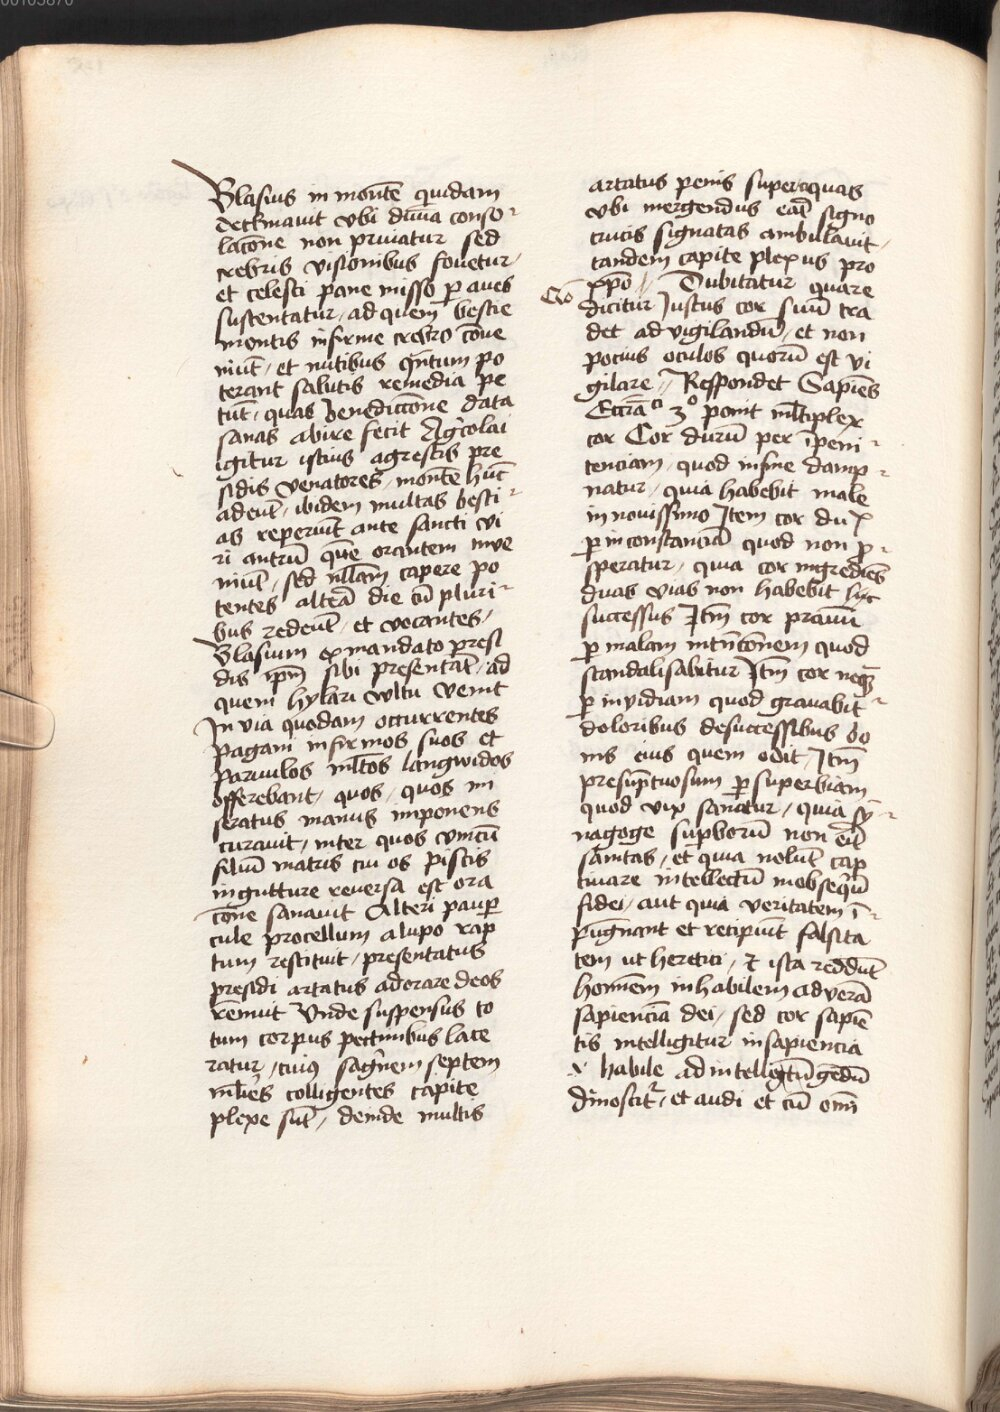 00103870
Blasius in montē quidam
declinauit vbi diuina conso
lacōne non priuatur sed
crebris visionibus fouetur
et celesti pane misso ꝑ aues
sustentatur / ad quem bestie
montis infirme crebro cōue
niūt / et nutibus qntum po
terant salutis remedia pe
tūt / quas benediccōne data
sanas abire fecit Agͥcolai
igitur istius agrestis pre
sidis venatores / montē hūc
adeūt / ibidem multas besti
as reperiūt ante sancti vi
ri antrū quē orantem inue
niūt / sed nllam capere po
tentes alterā die cū pluri
bus redeūt / et vocantes /
Blasium ex mandato presi
dis ipm sibi presentāt / ad
quem hylari vultu venit
In via quodam occurrentes
pagani infirmos suos et
paruulos mltos langwidos
offerebant / quos / quos mi
seratus manus imponens
curauit / inter quos vnicū
filiū matris cui os piscis
in gutture reuersa est ora
cōne sanauit Alteri pauꝑ
cule procellum a lupo rap
tum restituit / presentatus
presidi artatus adorare deos
renuit Unde suspensus to
tum corpus pectinibus lace
ratur / cuiꝰ sagnem septem
mlies colligentes capite
plexe sūt / deinde multis
artatus penis super aquas
vbi mergendus eā signo
crucis signatas ambulauit
tandem capite plexus pro
xp̄o // Dubitatur quare
Qo
dicitur Justus cor suū tra
det ad vigilandū / et non
pocius oculos quorū est vi
gilare // Respondet Sapiēs
Eccrāci 3º ponit mltiplex
cor Cor durū per īpeni
tenciam / quod in fine damp
natur / quia habebit male
in nouissimo Item cor du x
ꝑ inconstanciā quod non ꝓ
speratur / quia cor ingrediēs
duas vias non habebit hic
successus Itm cor prauū
ꝑ malam intencōnem quod
scandalisabitur Itm cor neqꝫ
ꝑ inuidiam quod grauabit
doloribus de successibus bo
nis eius quem odit / Itm
presūptuosum ꝑ superbiam
quod vix sanatur / quia sy
nagoge supborū non erit
sanitas / et quia nolūt cap
tiuare intellectū in obsequiū
fidei / aut quia veritatem ī
pugnant et recipiūt falsita
tem ut heretici / et ista reddūt
hominem inhabilem ad verā
sapienciā dei / sed cor sapiē
tis intelligitur in sapiencia
x habile ad intelligendū
dinoscitr / et audi et cū omi